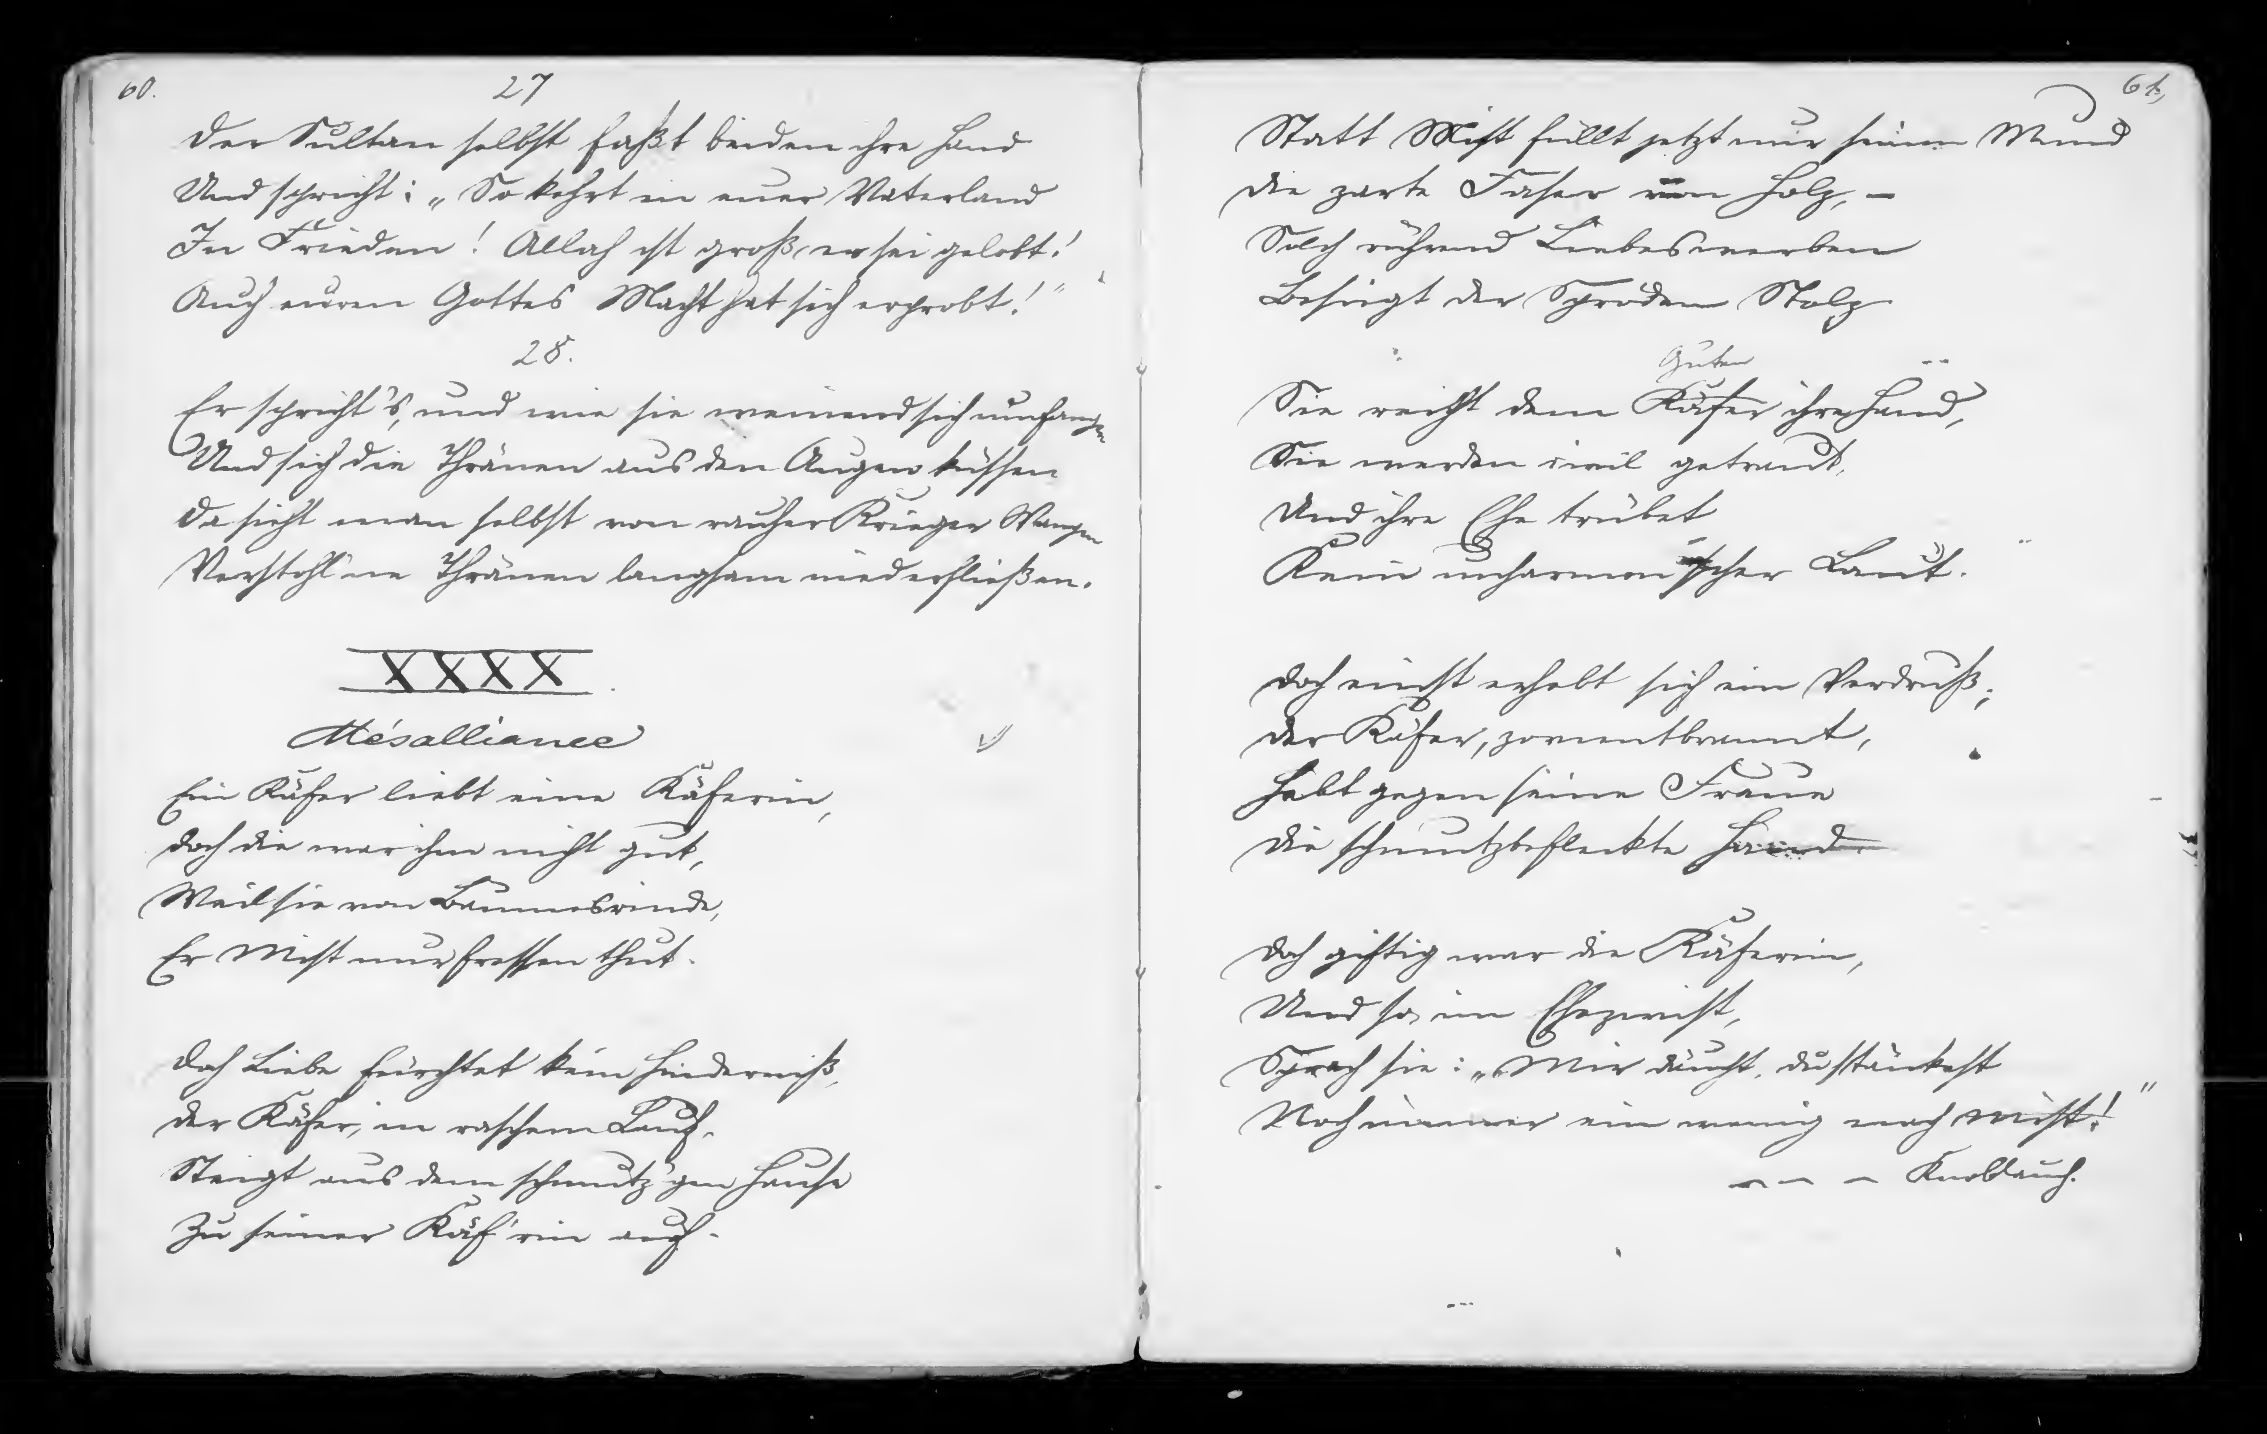 60.
27
Der Sultan selbst faßt beiden ihre Hand
Und spricht: „So kehrt in euer Vaterland
In Frieden! Allah ist groß, er sei gelobt!
Auch euren Gottes Macht hat sich erprobt!"
28.
Er spricht's, und wie sie weinend sich umfangen
Und sich die Thränen aus den Augen küssen
Da sieht man selbst von rauher Krieger Wangen
Verstohl'ne Thränen langsam niederfließen.
XXXX
Mésalliance
Ein Käfer liebt eine Käferin,
Doch die war ihm nicht gut,
Weil sie von Baumesrinde,
Er Mist nur fressen thut.
Doch Liebe fürchtet kein Hinderniß,
Der Käfer, in raschem Lauf,
Steigt aus dem schmutz'gen Hause
Zu seiner Käf'rin auf.
61,
Statt Mist füllt jetzt nur seinen Mund
Die zarte Faser von Holz, –
Solch rührend Liebeswerben
Besiegt der Spröden Stolz
Guten
Sie reicht dem Käfer ihre Hand,
Sie werden civil getraut,
Und ihre Ehe trübet
Kein unharmon'scher Laut.
Doch einst erhebt sich ein Verdruß;
Der Käfer, zornentbrannt,
Hebt gegen seine Fraue
Die schmutzbefleckte Hand.
Doch giftig war die Käferin,
Und so, im Ehezwist,
Sprach sie: „Mir däucht, du stänkest
Noch immer ein wenig nach Mist!"
– – – Knoblauch.